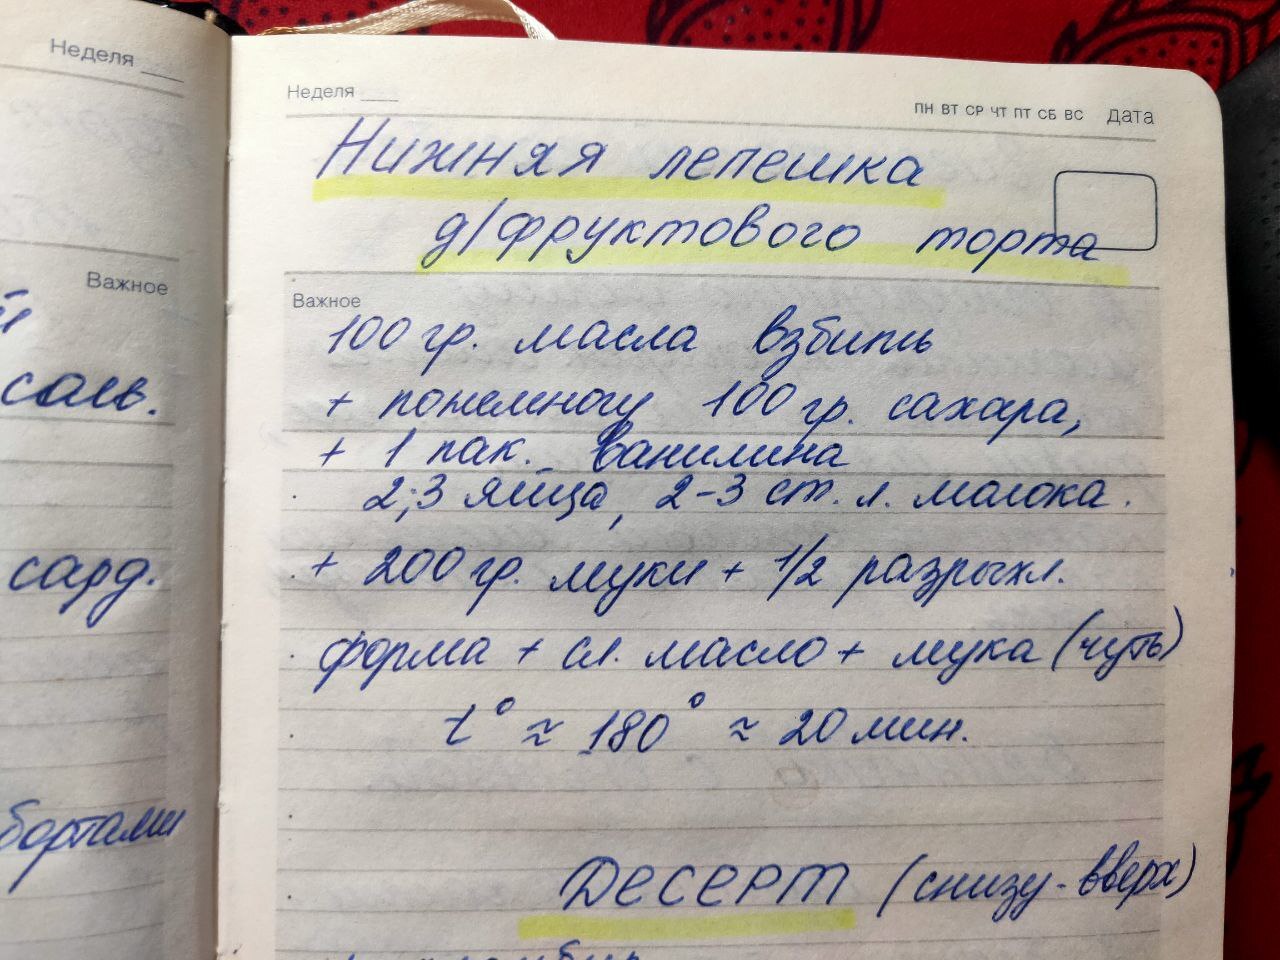 Неделя
Важное
соль.
сард.
бортами
Неделя
ПН ВТ СР ЧТ ПТ СБ ВС дата
Нижняя лепешка
д/фруктового торта
Важное
100 гр. масла взбить
+ понемногу 100 гр. сахара,
+ 1 пак. ванилина
2;3 яйца, 2-3 ст. л. молока.
+ 200 гр. муки + 1/2 разрыхл.
форма + сл. масло + мука (чуть)
t° ≈ 180° ≈ 20 мин.
Десерт (снизу-вверх)